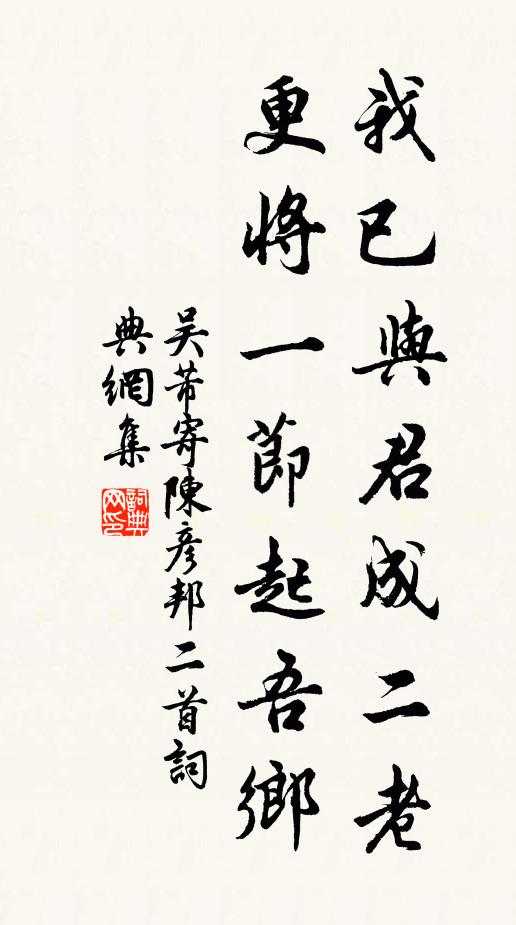 我已與君成二老
更將一節起吾鄉
吳芾寄陳彥邦二首詞
典網集
詞典
网印